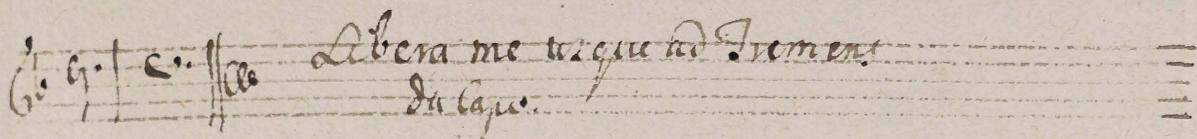 Libera me usque ad Tremens
da Capo.